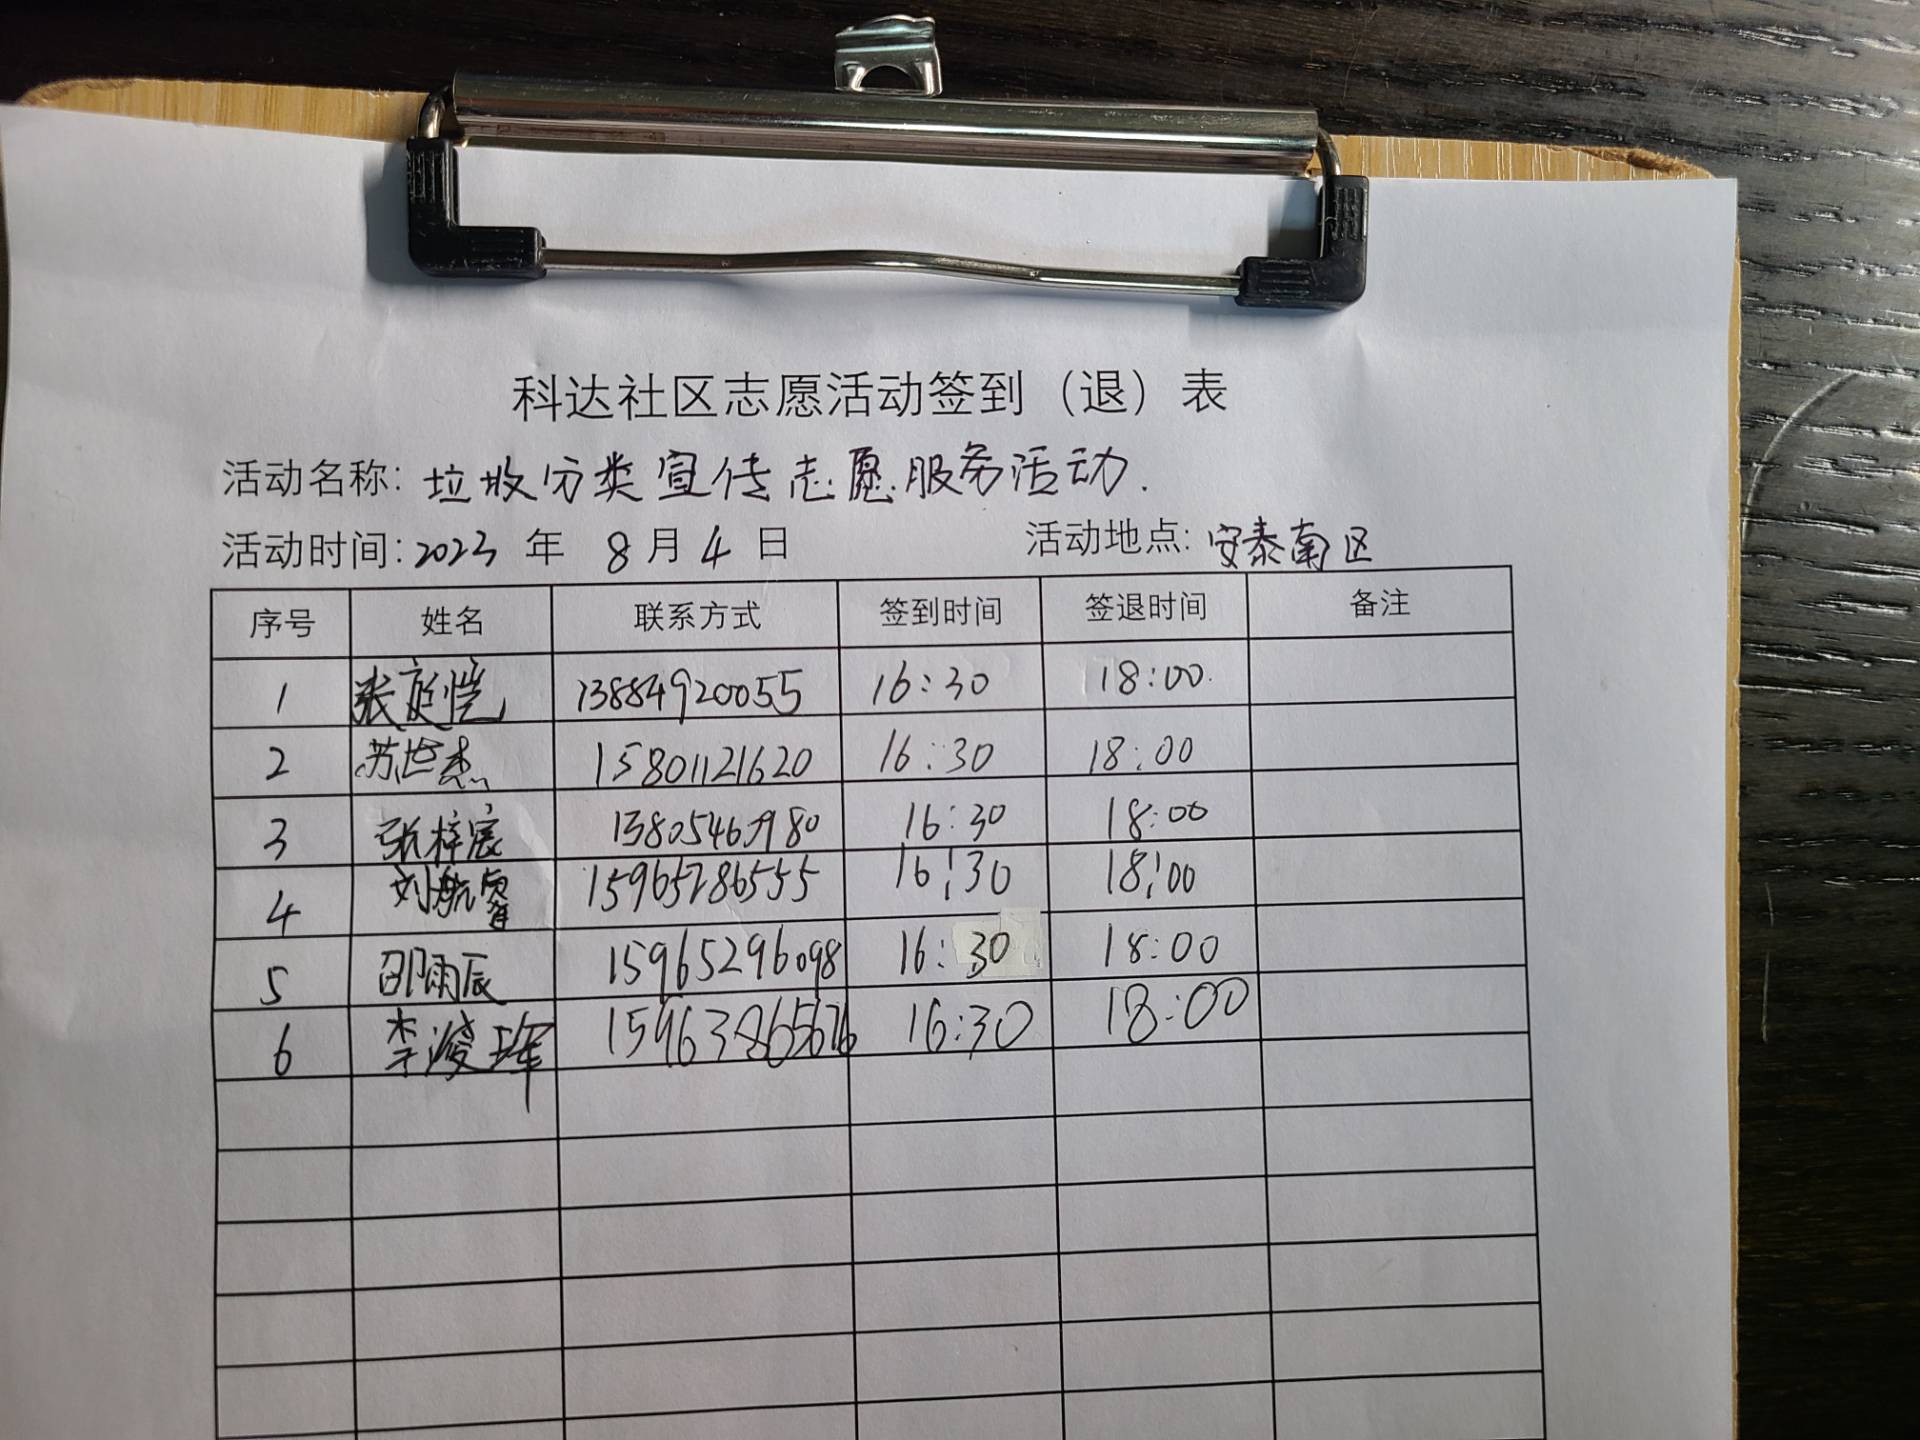 科达社区志愿活动签到（退）表
活动名称：垃圾分类宣传志愿服务活动.
活动时间：2023 年 8 月 4 日 活动地点：安泰南区
序号 姓名 联系方式 签到时间 签退时间 备注
1 张庭恺 13884920055 16:30 18:00
2 苏世杰 15801121620 16:30 18:00
3 张梓宸 16:30 18:00
4 刘航睿 15965286555 16:30 18:00
5 邵雨辰 15965296098 16:30 18:00
6 李浚珲 16:30 18:00